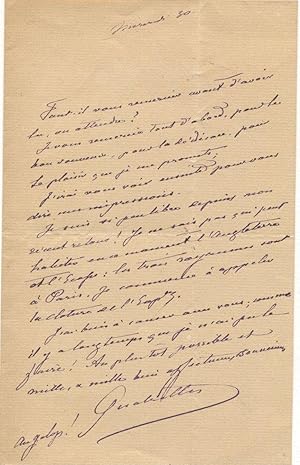 Mercredi 30
Faut-il vous remercier avant d'avoir
lu, ou attendre?
Je vous remercie tout d'abord, pour le
bon souvenir, pour la dédicace, pour
le plaisir que je me promets;
J'irai vous voir ensuite pour vous
dire mon impression.
Je suis si peu libre depuis mon
récent retour! Je ne sais pas qui peut
habiter en ce moment l'Angleterre
et l'Écosse: les trois royaumes sont
à Paris. Je commence à appeler
la clôture de l'
J'ai besoin de causer avec vous; comme
il y a longtemps que je n'ai pas
! Au plus tôt possible et
mille, et mille bien affectueux
au galop!